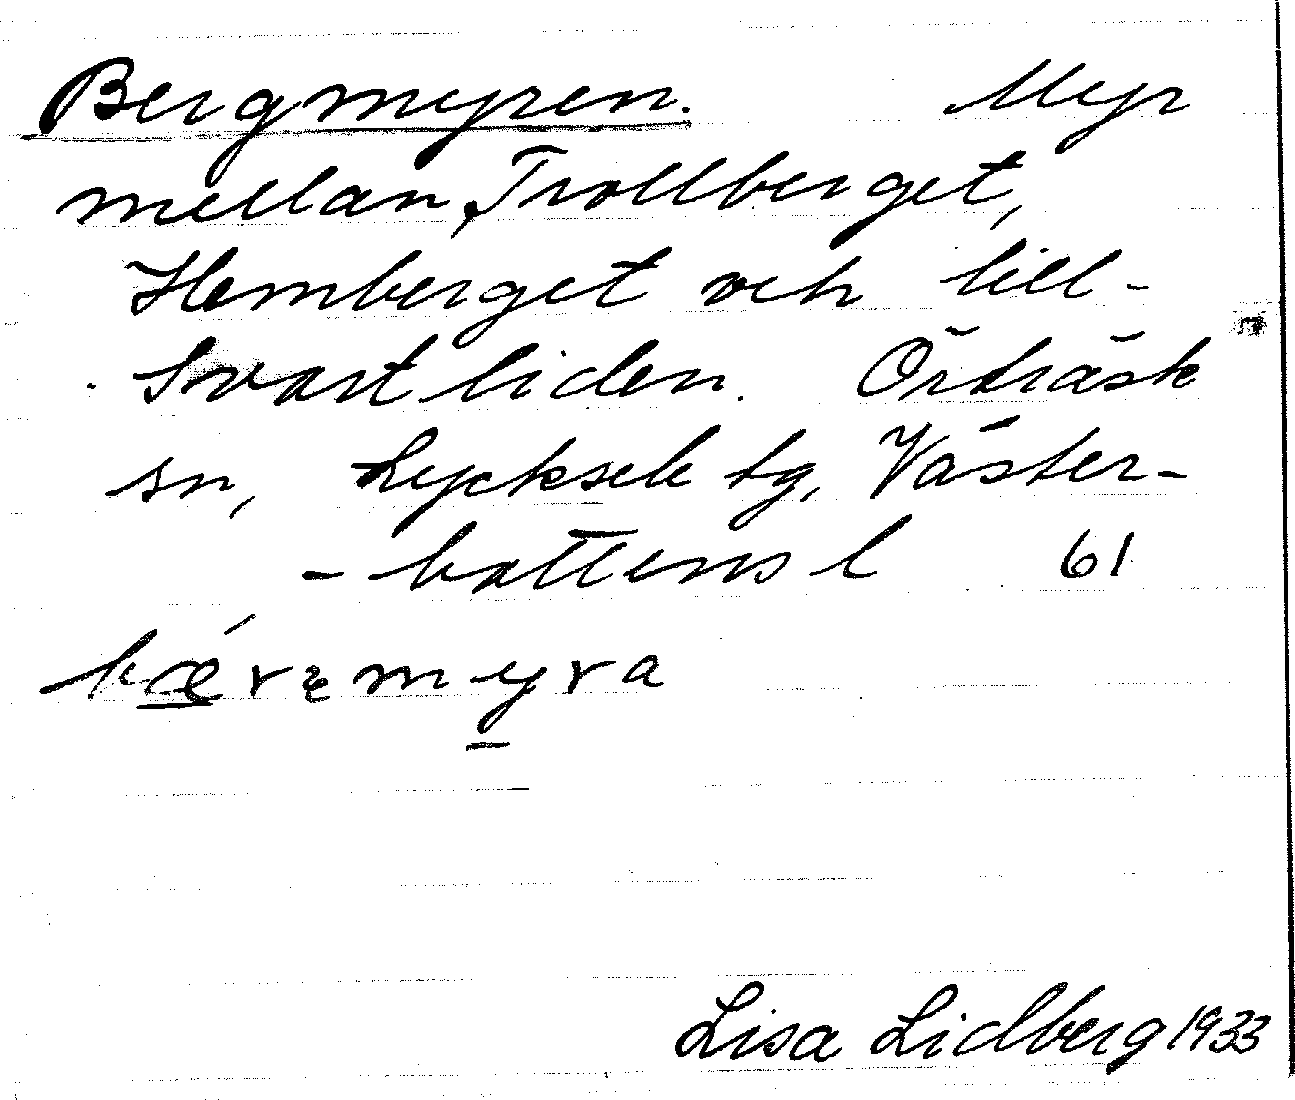 Bergmyren. Myr
mellan Trollberget,
Hemberget och lill-
Svartliden. Örträsk
sn, Lycksele tg, Väster-
-bottens l 61
bǽrɐmyra
Lisa Lidberg 1933